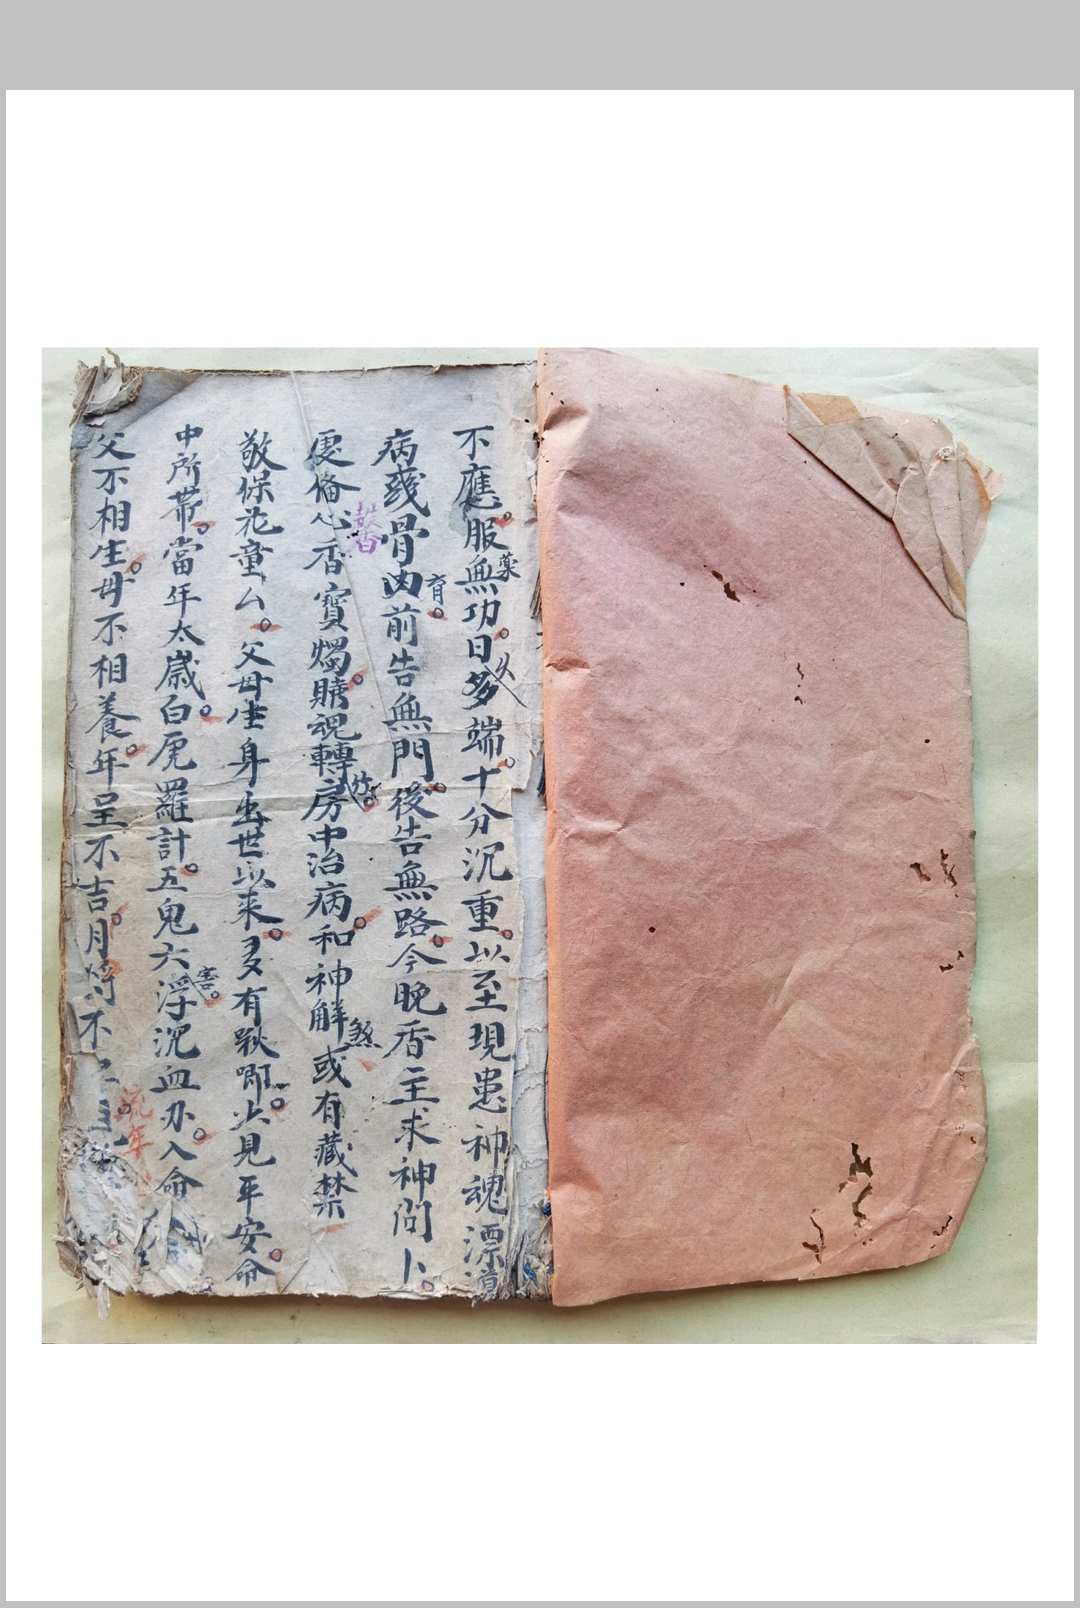 不應。服藥無功。日久多端。十分沉重。以至現患神魂漂
病殘骨肉。前告無門。後告無路。今晚香主求神問卜。
便俻心香寶燭。賤魂轉房中治病。和神解煞或有藏禁
敬保花童厶。父母生身出世以来。多有啾唧。少見平安。命
中所帶。當年太歲。白虎羅計。五鬼六害。浮沉血刃。入命
父不相生。母不相養。年呈不吉。月将不
馨
流年